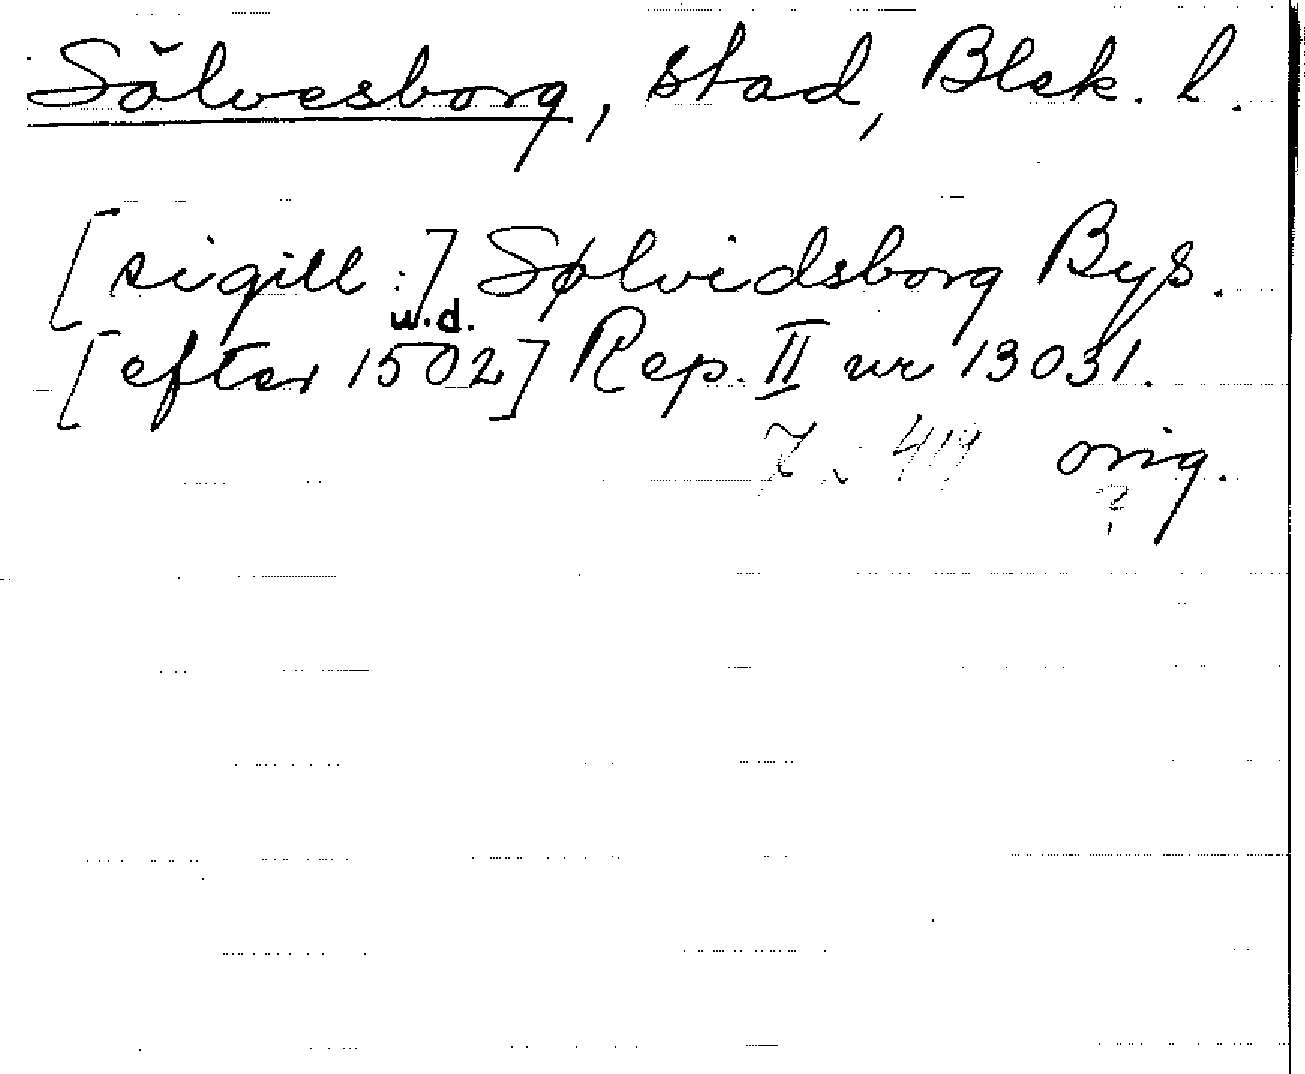 Sölvesborg, stad, Blek. l.
[sigill:] Sølvidsborg Bys.
w.d.
[efter 1502] Rep. II nr 13031.
7. 419 orig.
?